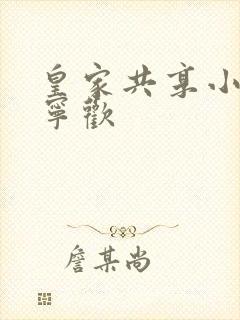 皇家共享小
宁欢
詹某尚